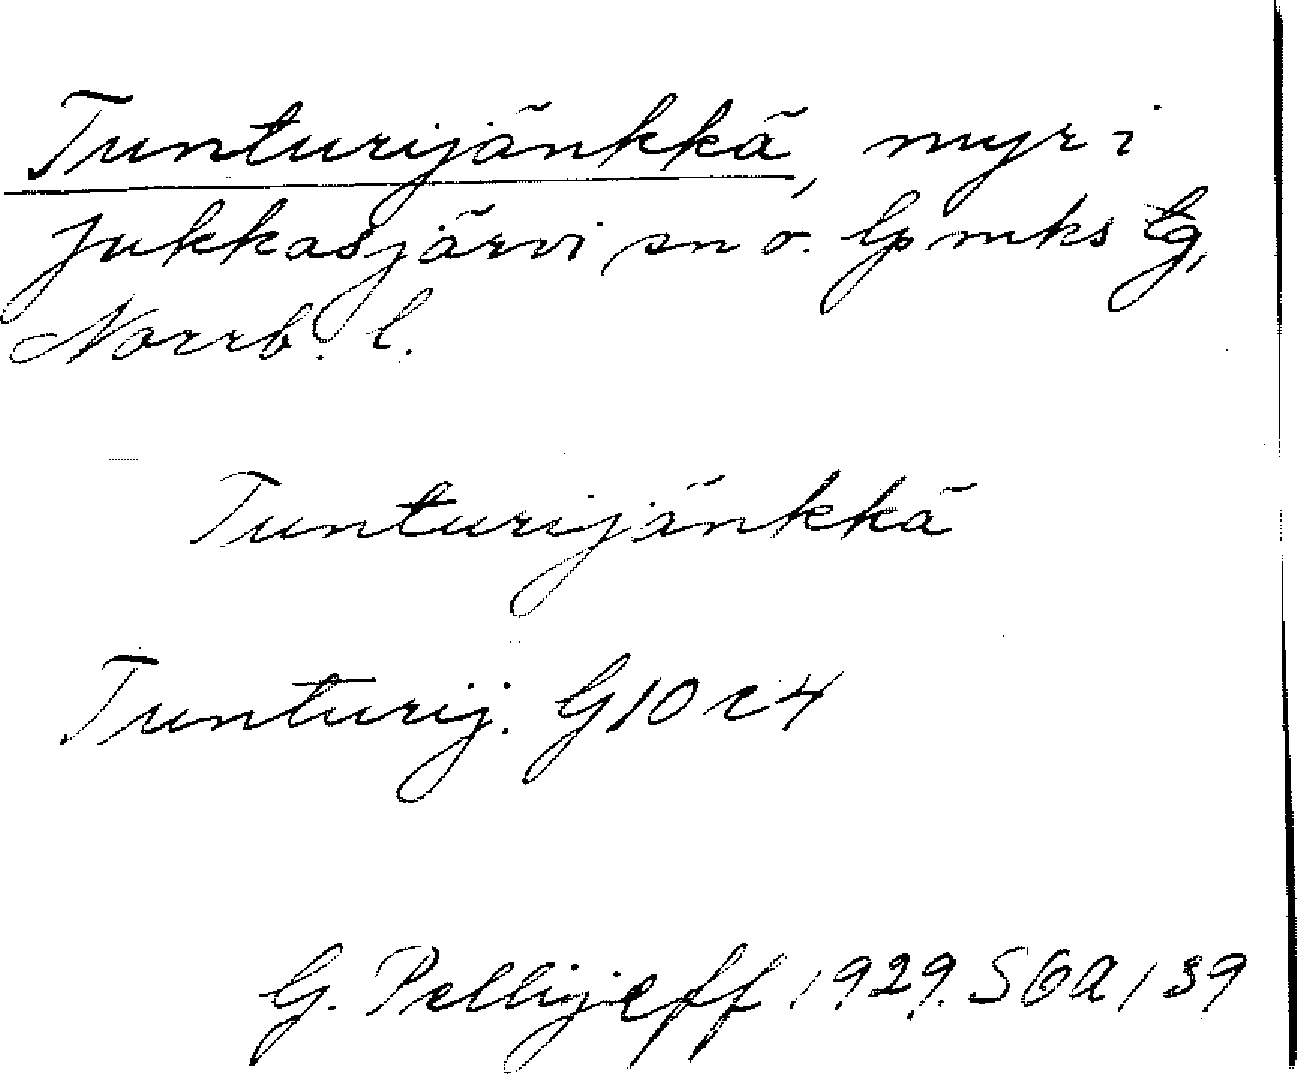 Tunturijänkkä, myr i
Jukkasjärvi sn o. lpmks lg,
Norrb. l.
Tunturijänkkä
Tunturij. G10c4
G. Pellijeff 1929. SOA 139